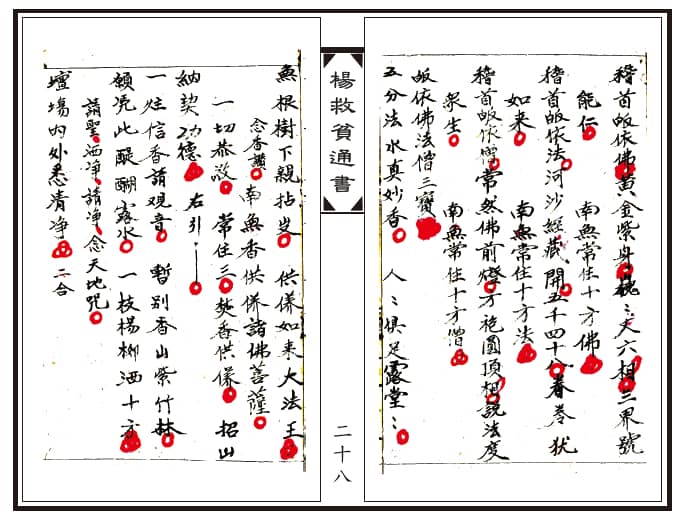 稽首皈依佛黄金紫身巍〻丈六相三界號
能仁 南無常住十方佛
稽首皈依法河沙經藏開五千四十八春卷
如来 南無常住十方法
稽首皈依僧常然佛前燈方袍圓頂相説法度
衆生 南無常住十方僧
皈依佛法僧三寶
五分法水真妙香 人〻俱足露堂〻
楊救貧通書
二十八
無根樹下親拈出 供俻如来大法王
念香讚 南無香供俻諸佛菩薩
一切恭敬 常住三 焚香供俻 招山
納契功德 右引
一炷信香請觀音 暫别香山紫竹林
願凴此醍醐露水 一枝楊柳洒十方
請聖洒净請净念天地咒
壇塲内外悉清净 二合